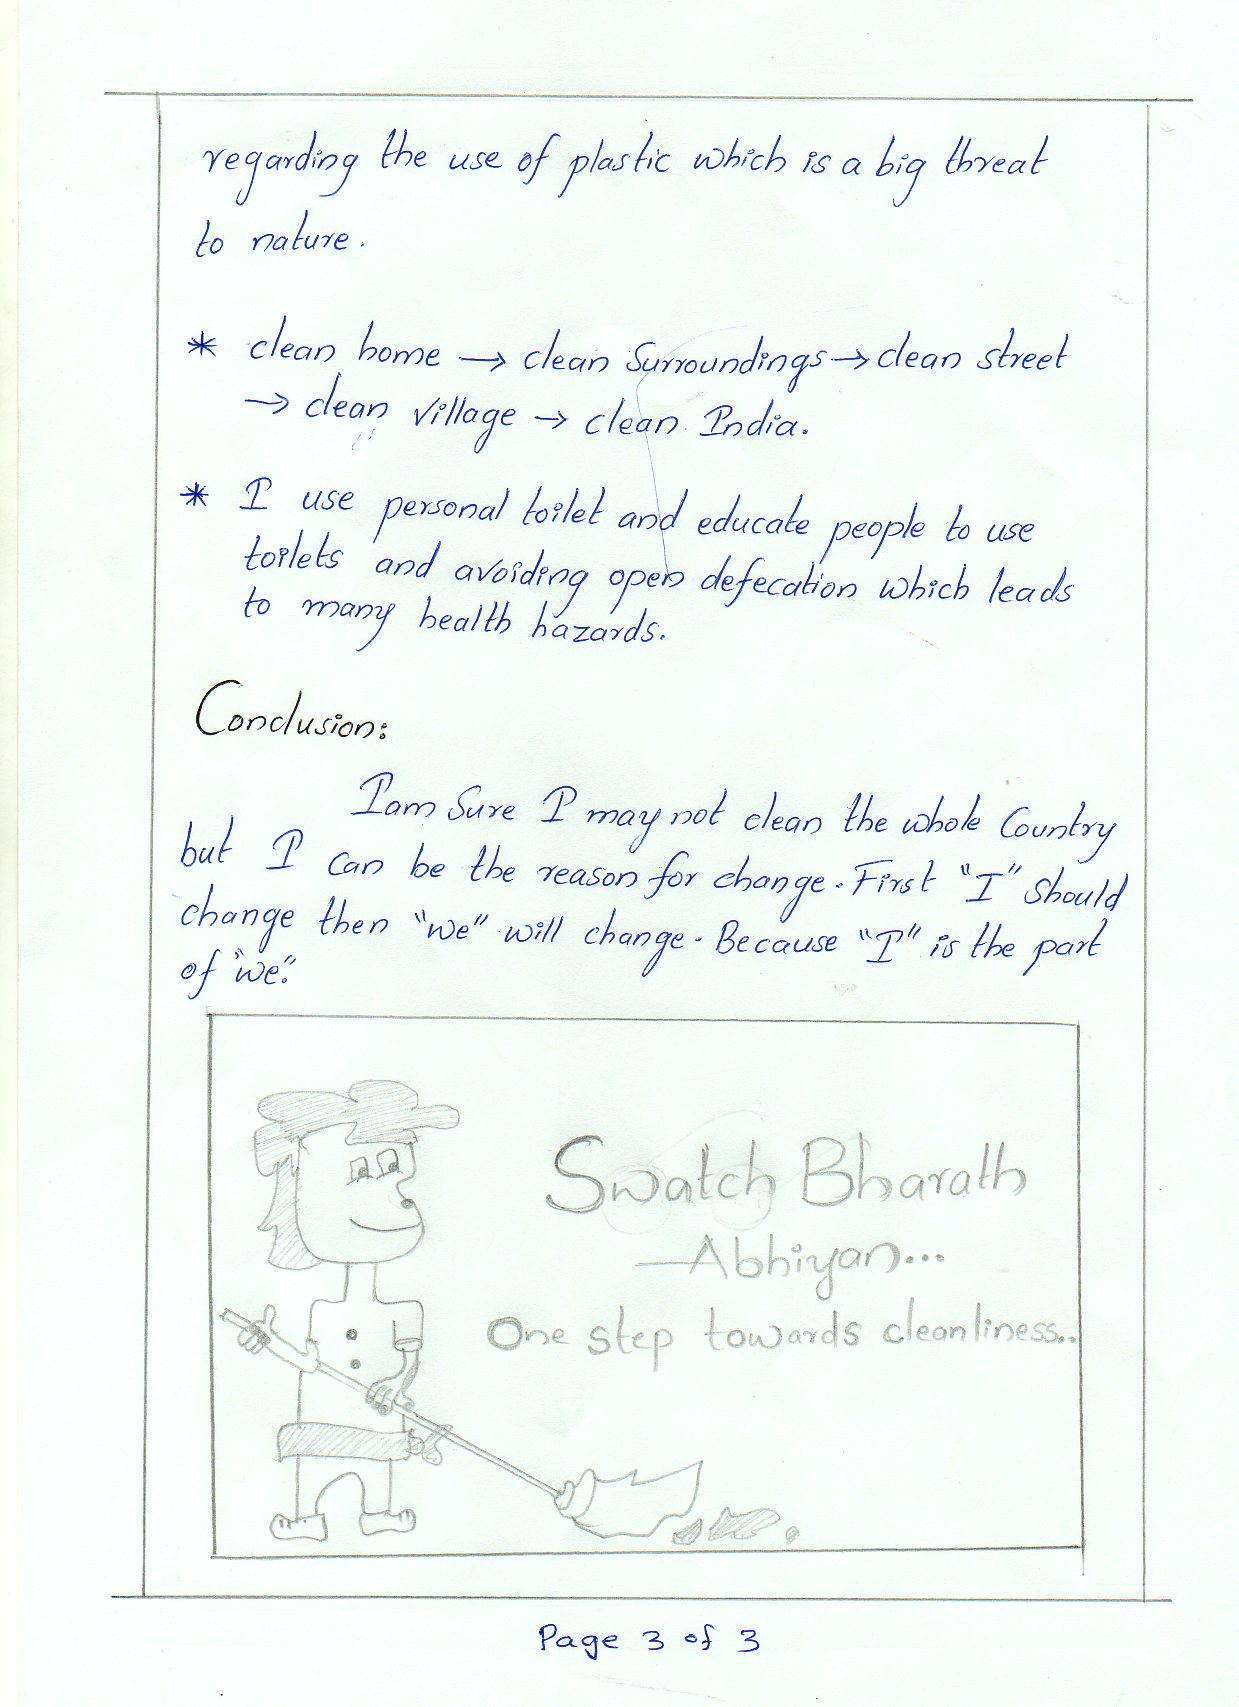 regarding the use of plastic which is a big threat
to nature.
* clean home → clean Surroundings → clean street
→ clean village → clean India.
* I use personal toilet and educate people to use
toilets and avoiding open defecation which leads
to many health hazards.
Conclusion:
I am Sure I may not clean the whole Country
but I can be the reason for change. First "I" Should
change then "we" will change. Because "I" is the part
of "we".
Swatch Bharath
Abhiyan...
One step towards cleanliness..
Page 3 of 3